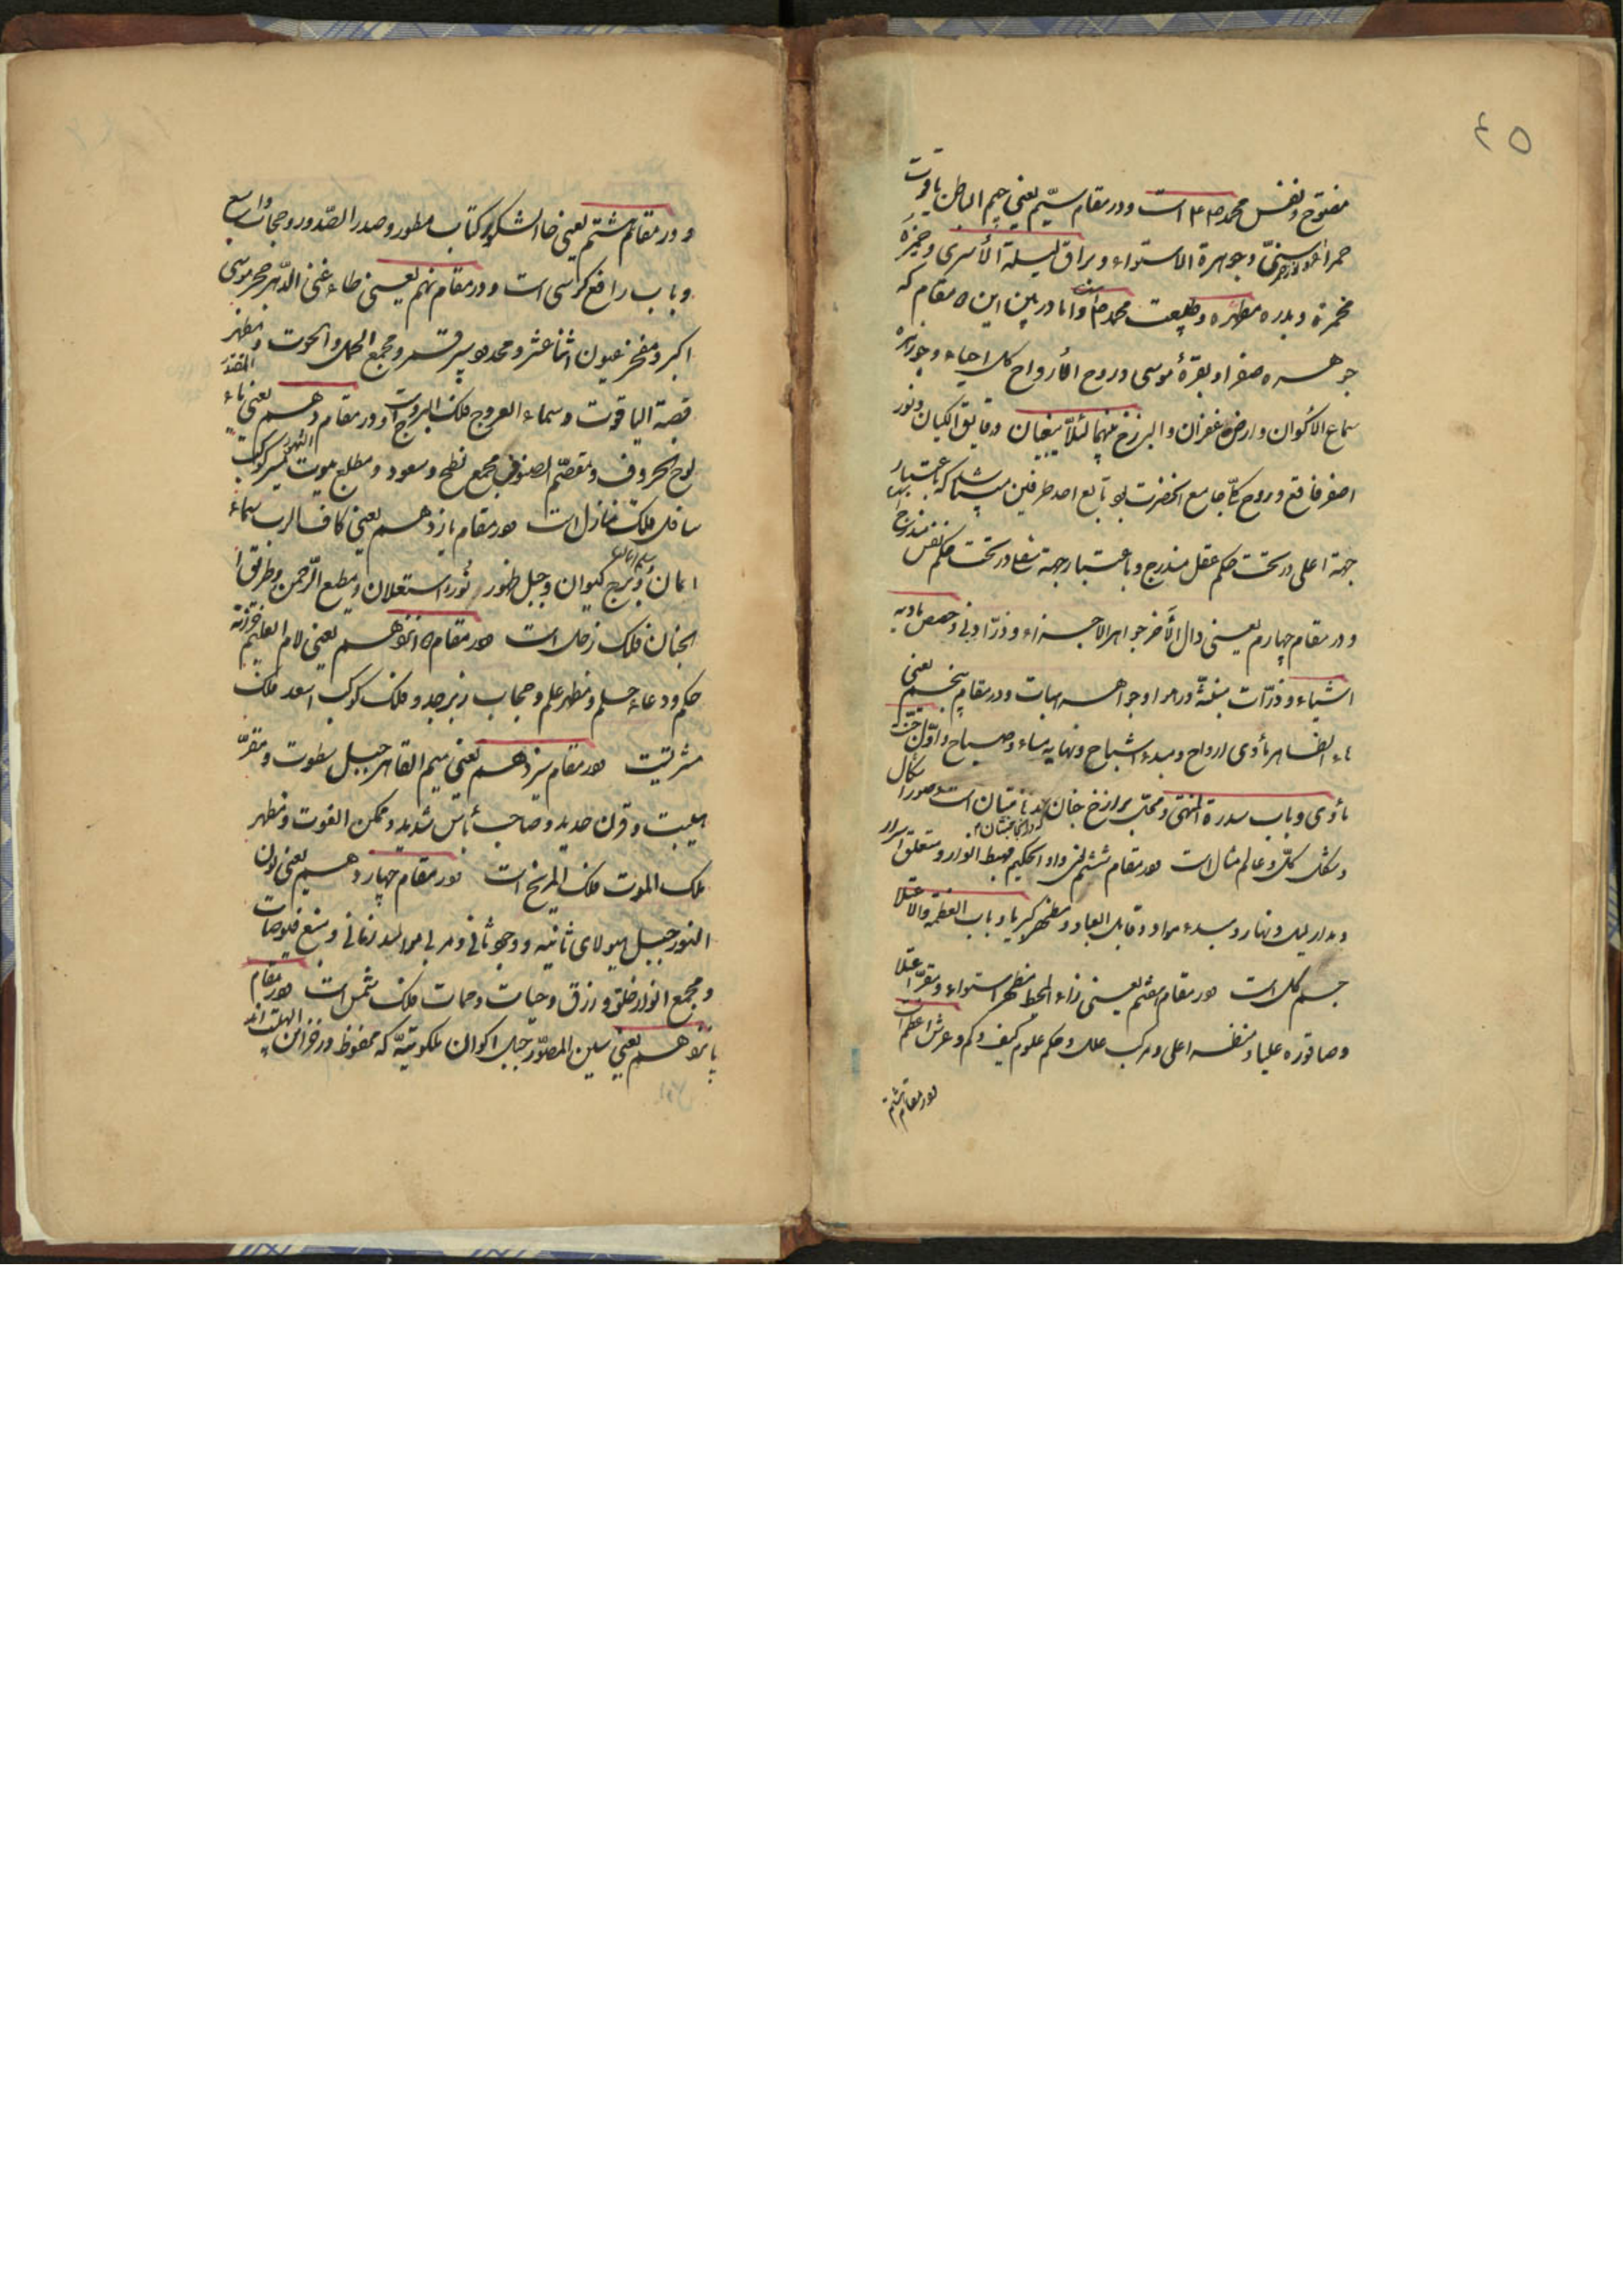 ۴۵
مفتوح و نفس محمد ص ۴ است و در مقام سیّم یعنی جیم الباطن یاقوت
حمرا و جوهرة الاستواء و براق لیلة الأسری و خمیرهٔ
مخمرة و بدره مطهره و طبیعت محمد ص و اما در بین این ۵ مقام که
جوهره صفرا و بقرهٔ موسی و روح الأرواح کل احیاء و
سماع الأکوان و ارض غفران و البرزخ بینهما لئلّا یبغیان و دقایق الکیان و نور
اصفر فاقع و روح کلّ جامع الحضرت بود تابع احد طرفین میباشد که باعتبار
جهة اعلی در تحت حکم عقل مندرج و باعتبار جهة سفلی در تحت حکم نفس مندرج
و در مقام چهارم یعنی دال الأخر جواهر الاجزاء و ذرّ اول و حصص مادیه
اشیاء و ذرّات منبثّة در هوا و جواهر هبات و در مقام پنجم یعنی
هاء الظاهر مأوی ارواح و مبدء اشباح و نهایه مساء و صباح و اوّل جنّت
مأوی و باب سدرة المنتهی و محلّ برازخ جنان مدهامتان است و صور اشکال
و شکل کلّ و عالم مثال است و در مقام ششم یعنی واو الحکیم مهبط انوار و متعلق اسرار
و مدار لیل و نهار و مبدء مواد و قابل العباد و مظهر کبریا و باب العظمة والاعتلا
جسم کل است و در مقام هفتم یعنی زاء المحیط مظهر استواء و مقرّ اعتلا
و صاقوره علیا و منظر اعلی و مرکب علل و حکم علوم کیف و کم و عرش اعظم است
و در مقام هشتم
و در مقام هشتم یعنی حاء الشکور کتاب مسطور و صدر الصّدور و حجاب واسع
و باب رافع کرسی است و در مقام نهم یعنی طاء غنی الدّهر حجر موسی
اکبر و مفجر عیون اثنا عشر و محدود سیر قمر و مجمع الحمل و الحوت و مظهر المقتدر
قصبة الیاقوت و سماء العروج فلک البروج است و در مقام دهم یعنی یاء
لوح الحروف و مجمع نطح و سعود و مطلع موت مسیر کوکب
سافل فلک منازل است و در مقام یازدهم یعنی کاف الرب سماء
ایمان و برج کیوان و جبل طور و نور استعلان و مطلع الرّحمن و طریق الی
الجنان فلک زحل است و در مقام دوازدهم یعنی لام العلیم خزانه
حکم و دعاء حلم و مظهر علم و حجاب زبرجد و فلک کوکب اسعد فلک
مشتریست و در مقام سیزدهم یعنی میم القاهر جبل سطوت و مقرّ
هیبت و قرن حدید و صاحب بأس شدید و ممکن الفوت و مظهر
ملک الموت فلک المریخ است و در مقام چهاردهم یعنی نون
النور جبل هیولای ثانیه و وجود ثانی و مربی موالید زمانی و منبع فیوضات
و مجمع انوار خلق و رزق و حیات و ممات فلک شمس است و در مقام
پانزدهم یعنی سین المصوّر جبل اکوان ملکوتیّه که محفوظ در خزاین الهیّه‌اند